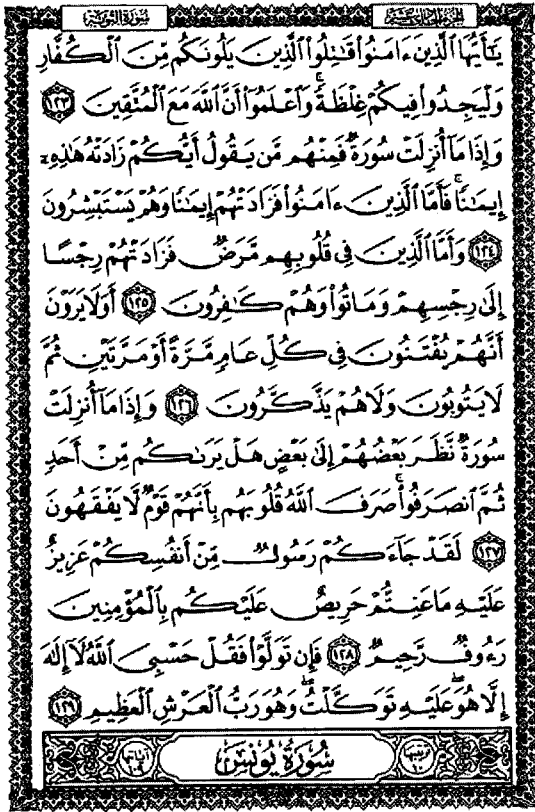 سُورَةُ التَّوْبَةِ
الجُزْءُ الحَادِى عَشَرَ
يَٰٓأَيُّهَا ٱلَّذِينَ ءَامَنُواْ قَٰتِلُواْ ٱلَّذِينَ يَلُونَكُم مِّنَ ٱلْكُفَّارِ
وَلْيَجِدُواْ فِيكُمْ غِلْظَةً ۚ وَٱعْلَمُوٓاْ أَنَّ ٱللَّهَ مَعَ ٱلْمُتَّقِينَ ١٢٣
وَإِذَا مَآ أُنزِلَتْ سُورَةٌ فَمِنْهُم مَّن يَقُولُ أَيُّكُمْ زَادَتْهُ هَٰذِهِۦٓ
إِيمَٰنًا ۚ فَأَمَّا ٱلَّذِينَ ءَامَنُواْ فَزَادَتْهُمْ إِيمَٰنًا وَهُمْ يَسْتَبْشِرُونَ
١٢٤ وَأَمَّا ٱلَّذِينَ فِى قُلُوبِهِم مَّرَضٌ فَزَادَتْهُمْ رِجْسًا
إِلَىٰ رِجْسِهِمْ وَمَاتُواْ وَهُمْ كَٰفِرُونَ ١٢٥ أَوَلَا يَرَوْنَ
أَنَّهُمْ يُفْتَنُونَ فِى كُلِّ عَامٍ مَّرَّةً أَوْ مَرَّتَيْنِ ثُمَّ
لَا يَتُوبُونَ وَلَا هُمْ يَذَّكَّرُونَ ١٢٦ وَإِذَا مَآ أُنزِلَتْ
سُورَةٌ نَّظَرَ بَعْضُهُمْ إِلَىٰ بَعْضٍ هَلْ يَرَىٰكُم مِّنْ أَحَدٍ
ثُمَّ ٱنصَرَفُواْ ۚ صَرَفَ ٱللَّهُ قُلُوبَهُم بِأَنَّهُمْ قَوْمٌ لَّا يَفْقَهُونَ
١٢٧ لَقَدْ جَآءَكُمْ رَسُولٌ مِّنْ أَنفُسِكُمْ عَزِيزٌ
عَلَيْهِ مَا عَنِتُّمْ حَرِيصٌ عَلَيْكُم بِٱلْمُؤْمِنِينَ
رَءُوفٌ رَّحِيمٌ ١٢٨ فَإِن تَوَلَّوْاْ فَقُلْ حَسْبِىَ ٱللَّهُ لَآ إِلَٰهَ
إِلَّا هُوَ ۖ عَلَيْهِ تَوَكَّلْتُ ۖ وَهُوَ رَبُّ ٱلْعَرْشِ ٱلْعَظِيمِ ١٢٩
سُورَةُ يُونُسَ